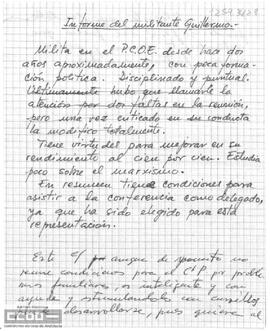 Informe del militante Guillermo.-
Milita en el P.C.O.E. desde hace dos
años aproximadamente, con poca forma-
ción política. Disciplinado y puntual.
Ultimamente hubo que llamarle la
atención por dos faltas en la reunión,
pero una vez criticado en su conducta
la modificó totalmente.
Tiene virtud para mejorar en su
rendimiento al cien por cien. Estudia
poco sobre el marxismo.
En resumen tiene condiciones para
asistir a la conferencia como delegado,
ya que ha sido elegido para esta
representación.
Este C/ aunque de momento no
reune condiciones para el por proble
mas familiares, es inteligente y con
ayuda y estimulandolo con cursillos
desarrollarse, pues quiere al
CCOO